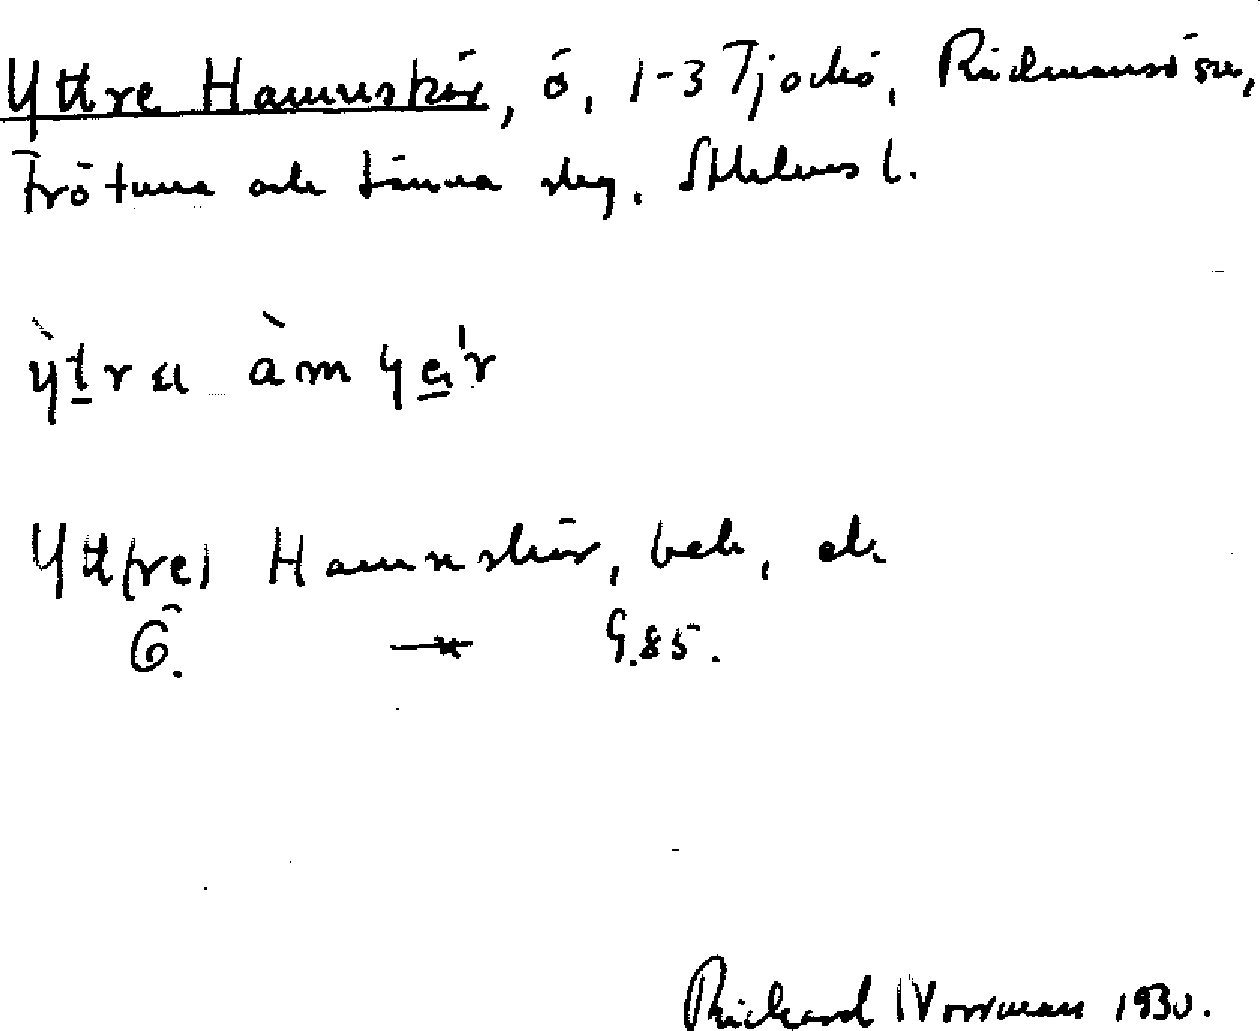 Yttre Hamnskär, ö, 1-3 Tjockö, Rådmansö sn,
Frötuna och Länna skg, Sthlms l.
Yt(re) Hamnskär, beb, ek
G. 85.
Richard Norrman 1930.